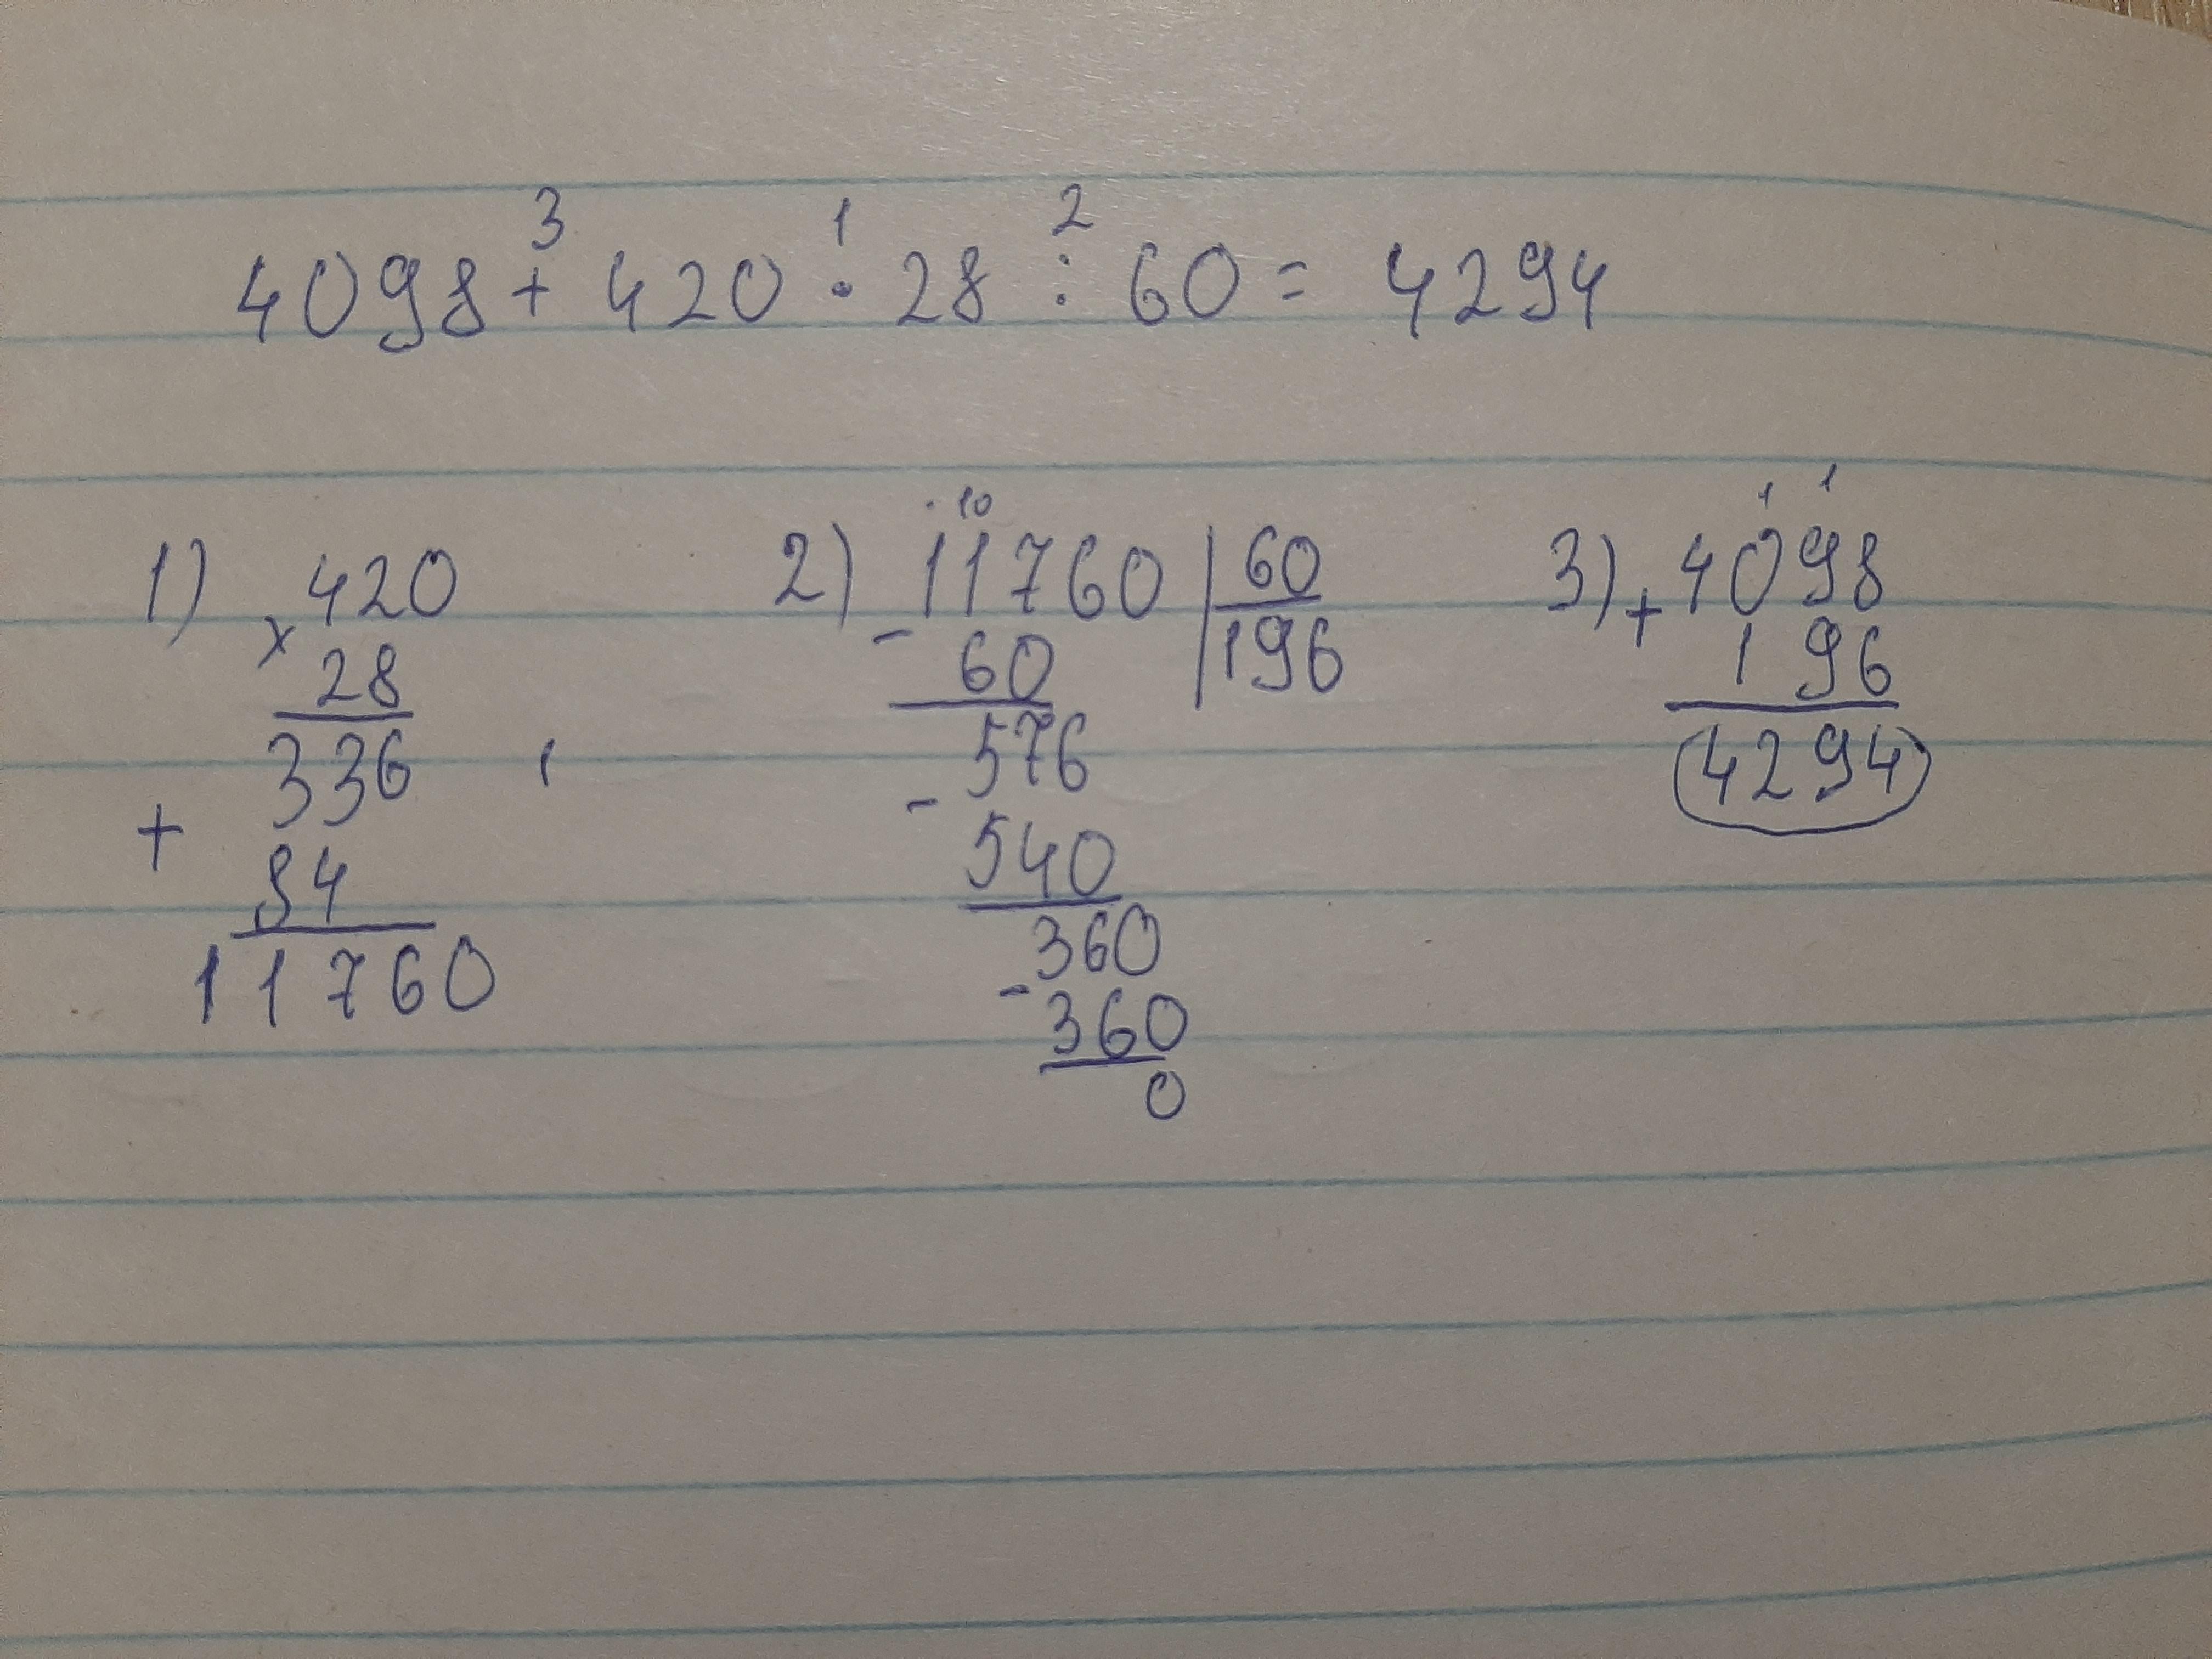 3 1 2
4098 + 420 · 28 : 60 = 4294
1) 420
× 28
336
+ 84
11760
2) 10
11760 | 60
- 60 | 196
576
- 540
360
- 360
0
3) 1 1
+ 4098
196
4294